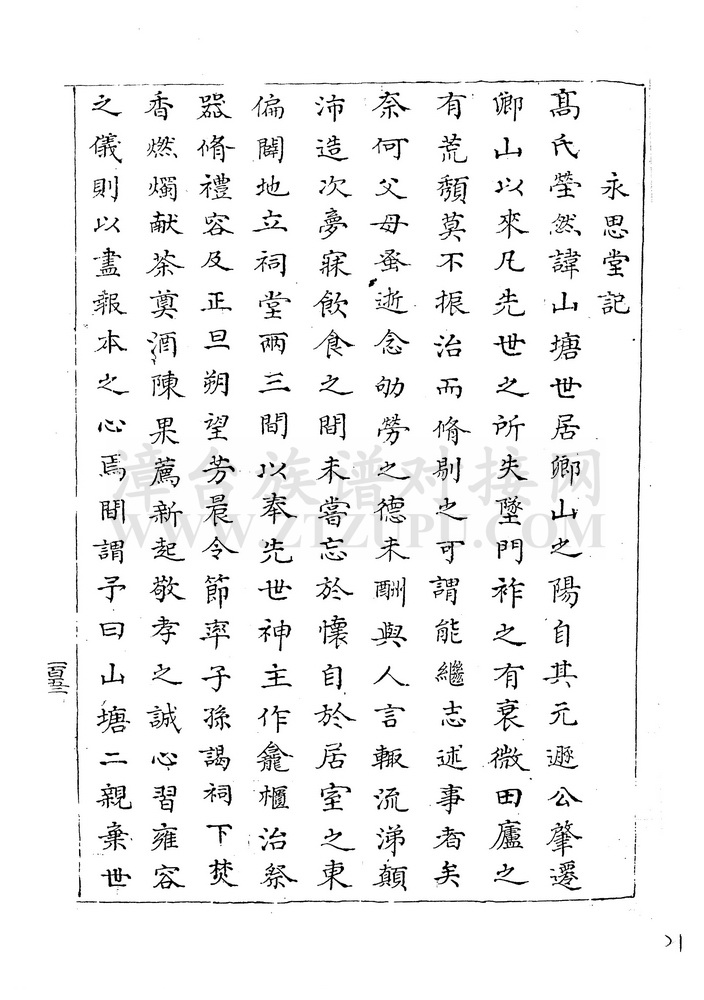 永思堂記
髙氏瑩然諱山塘世居卿山之陽自其元遯公肇遷
卿山以來凡先世之所失墜門祚之有衰微田廬之
有荒頽莫不振治而脩剔之可謂能繼志述事者矣
奈何父母蚤逝念劬勞之德未酬與人言輙流涕顛
沛造次夢寐飲食之間未嘗忘於懷自於居室之東
偏闢地立祠堂兩三間以奉先世神主作龕櫃治祭
器脩禮容及正旦朔望芳晨令節率子孫謁祠下焚
香燃燭献茶奠酒陳果薦新起敬孝之誠心習雍容
之儀則以盡報本之心焉間謂予曰山塘二親棄世
漳台族谱对接网
WWW.ZTZUPU.COM
21